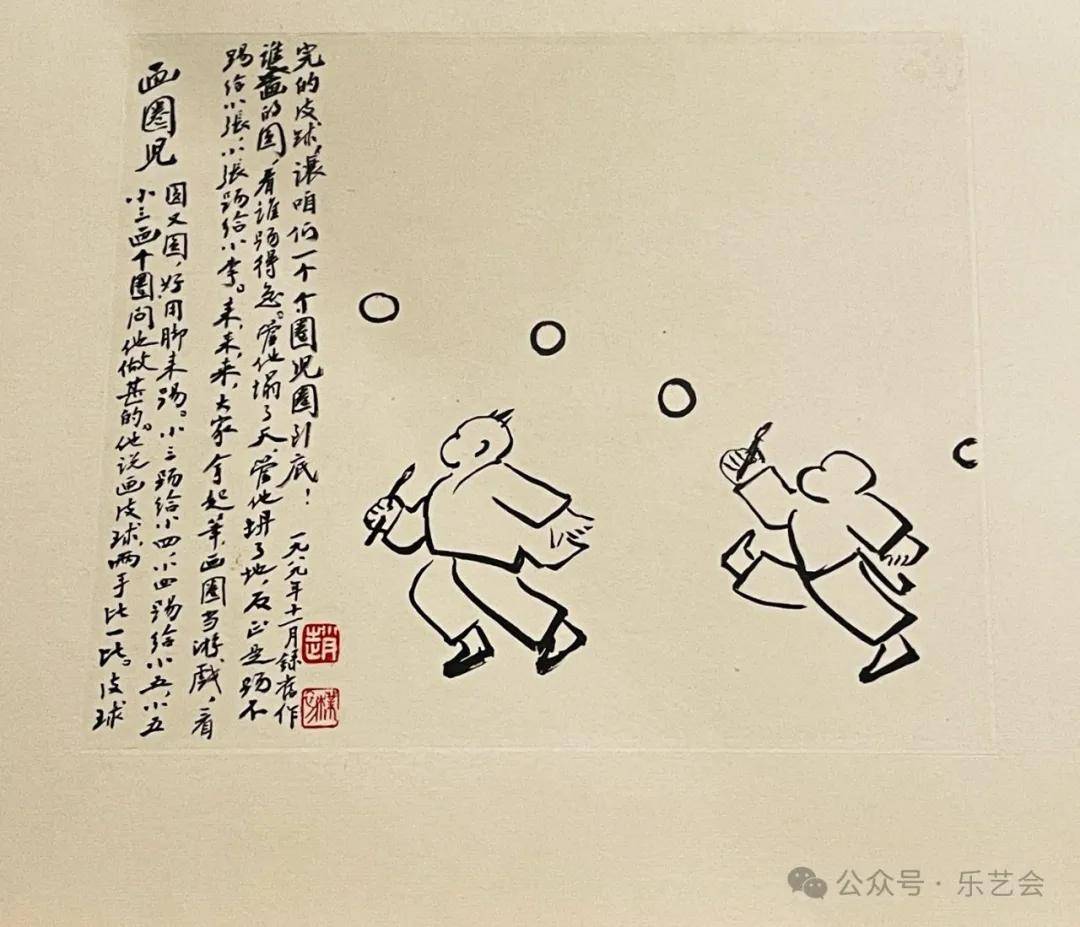 画圈児
小三画个圈问他做甚的。他说画皮球,两手比一比。皮球
圆又圆,好用脚来踢。小三踢给小四,小四踢给小五,小五
踢给小張,小張踢给小李。来,来,来,大家拿起筆,画圈当游戏,看
谁画的圆,看谁踢得急。管他塌了天,管他坍了地,反正是踢不
完的皮球,讓咱们一个个圈児圈到底!
一九八九年十一月録旧作
趙
樸初
公众号·乐艺会